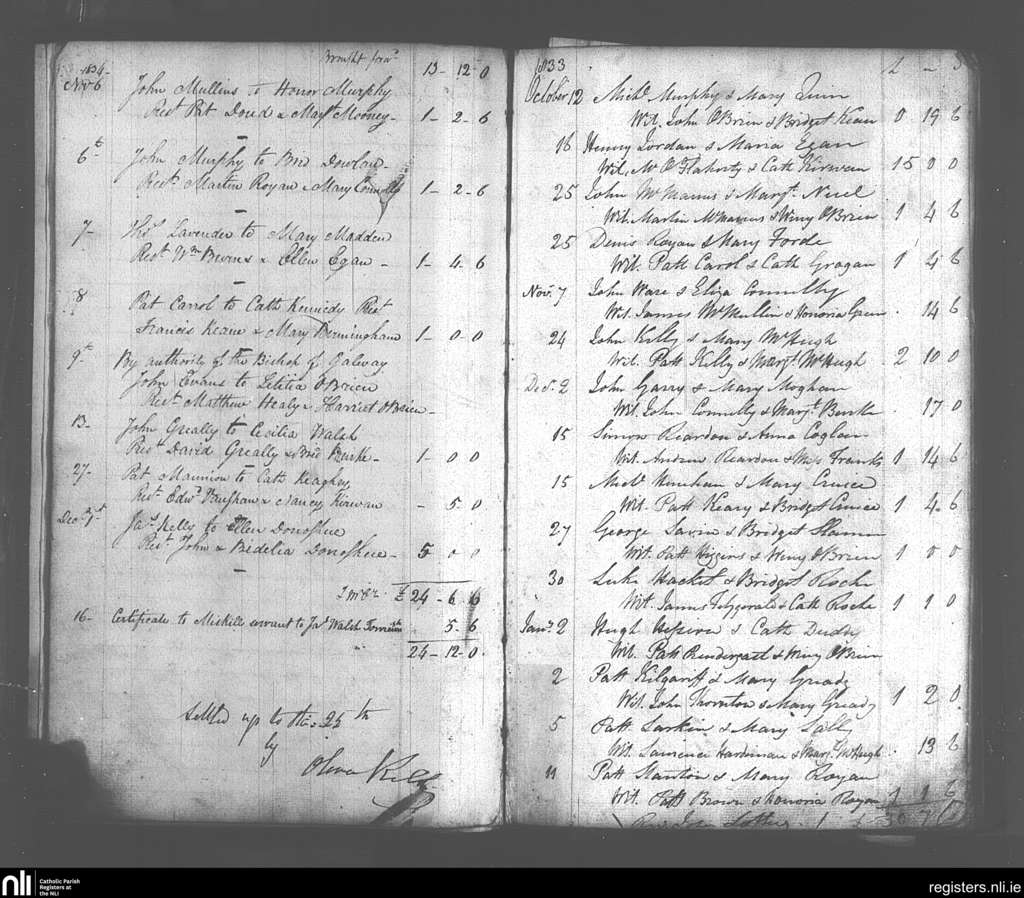 Brought forwd 13-12-0
1834
Nov 6 John Mullins to Honor Murphy
Rest Pat Doud & Mayt Mooney- 1-2-6
6th John Murphy to Brid
Rest Martin Royan & Mary Connolly 1-2-6
7- Thos Lavender to Mary Madden
Rest Wm Burns & Ellen Egan- 1-4-6
8 Pat Carrol to Cath Kennedy Rest
Francis Keane & Mary Birmingham 1-0-0
9th By authority of the Bishop of Galway
John Evans to Letitia O'Brien
Rest Matthew Healy & Harriet O'Brien-
13- John Greally to Cecilia Walsh
Rest David Greally & Brid Burke- 1 0 0
27- Pat Mannion to Cath Heaghey
Rest Edwd & Nancy Kirwan - 5 0
Decr 1st Jas Kelly to Ellen Donoghue
Rest John & Bedelia Donoghue- 5 0 0
£24-6-6
16- Certificate to Miskill servant to Jas Walsh 5-6
24-12-0
Settled up to the 25th
by
1833 2 - 5
October 12 Michl Murphy & Mary Quin
Wit. John O'Brien & Bridget Kean 0 19 6
16 Henry Jordan & Maria Egan
Wit. Mr O'Flaherty & Cath Kirwan 15 0 0
25 John McManus & Margt
Wit. Martin McManus & Winy O'Brien 1 4 6
25 Denis Royan & Mary Forde
Wit. Patt Carol & Cath Gragan 1 4 6
Novr. 7 John Ware & Eliza Connolly
Wit. James McMullin & Honoria 14 6
24 John Killy & Mary McHugh
Wit. Patt Killy & Margt McHugh 2 10 0
Decr. 2 John Garry & Mary Moghan
Wit. John Connolly & Margt. Burke 17 0
15 Simon Reardon & Anna Coglan
Wit. Andrew Reardon & Mrs Franks 1 14 6
15 Michl & Mary Cruice
Wit. Patt Keary & Bridget Cruice 1 4 6
27 George Savin & Bridget
Wit. Patt Higgins & Winy O'Brien 1 0 0
30 Luke Hacket & Bridget Roche
Wit. James Fitzgerald & Cath Roche 1 1 0
Jany. 2 Hugh & Cath Duddy
Wit. Patt Prendergast & Winy O'Brien
2 Patt Kilgariff & Mary Gready
Wit. John Thornton & Mary Gready 1 2 0
5 Patt Larkin & Mary Lally
Wit. Laurence Hardiman & Margt. McHugh 13 6
11 Patt Stanton & Mary Royan
Wit. Patt Brown & Honoria Royan 1 1 6
nli
Catholic Parish
Registers at
the NLI
registers.nli.ie